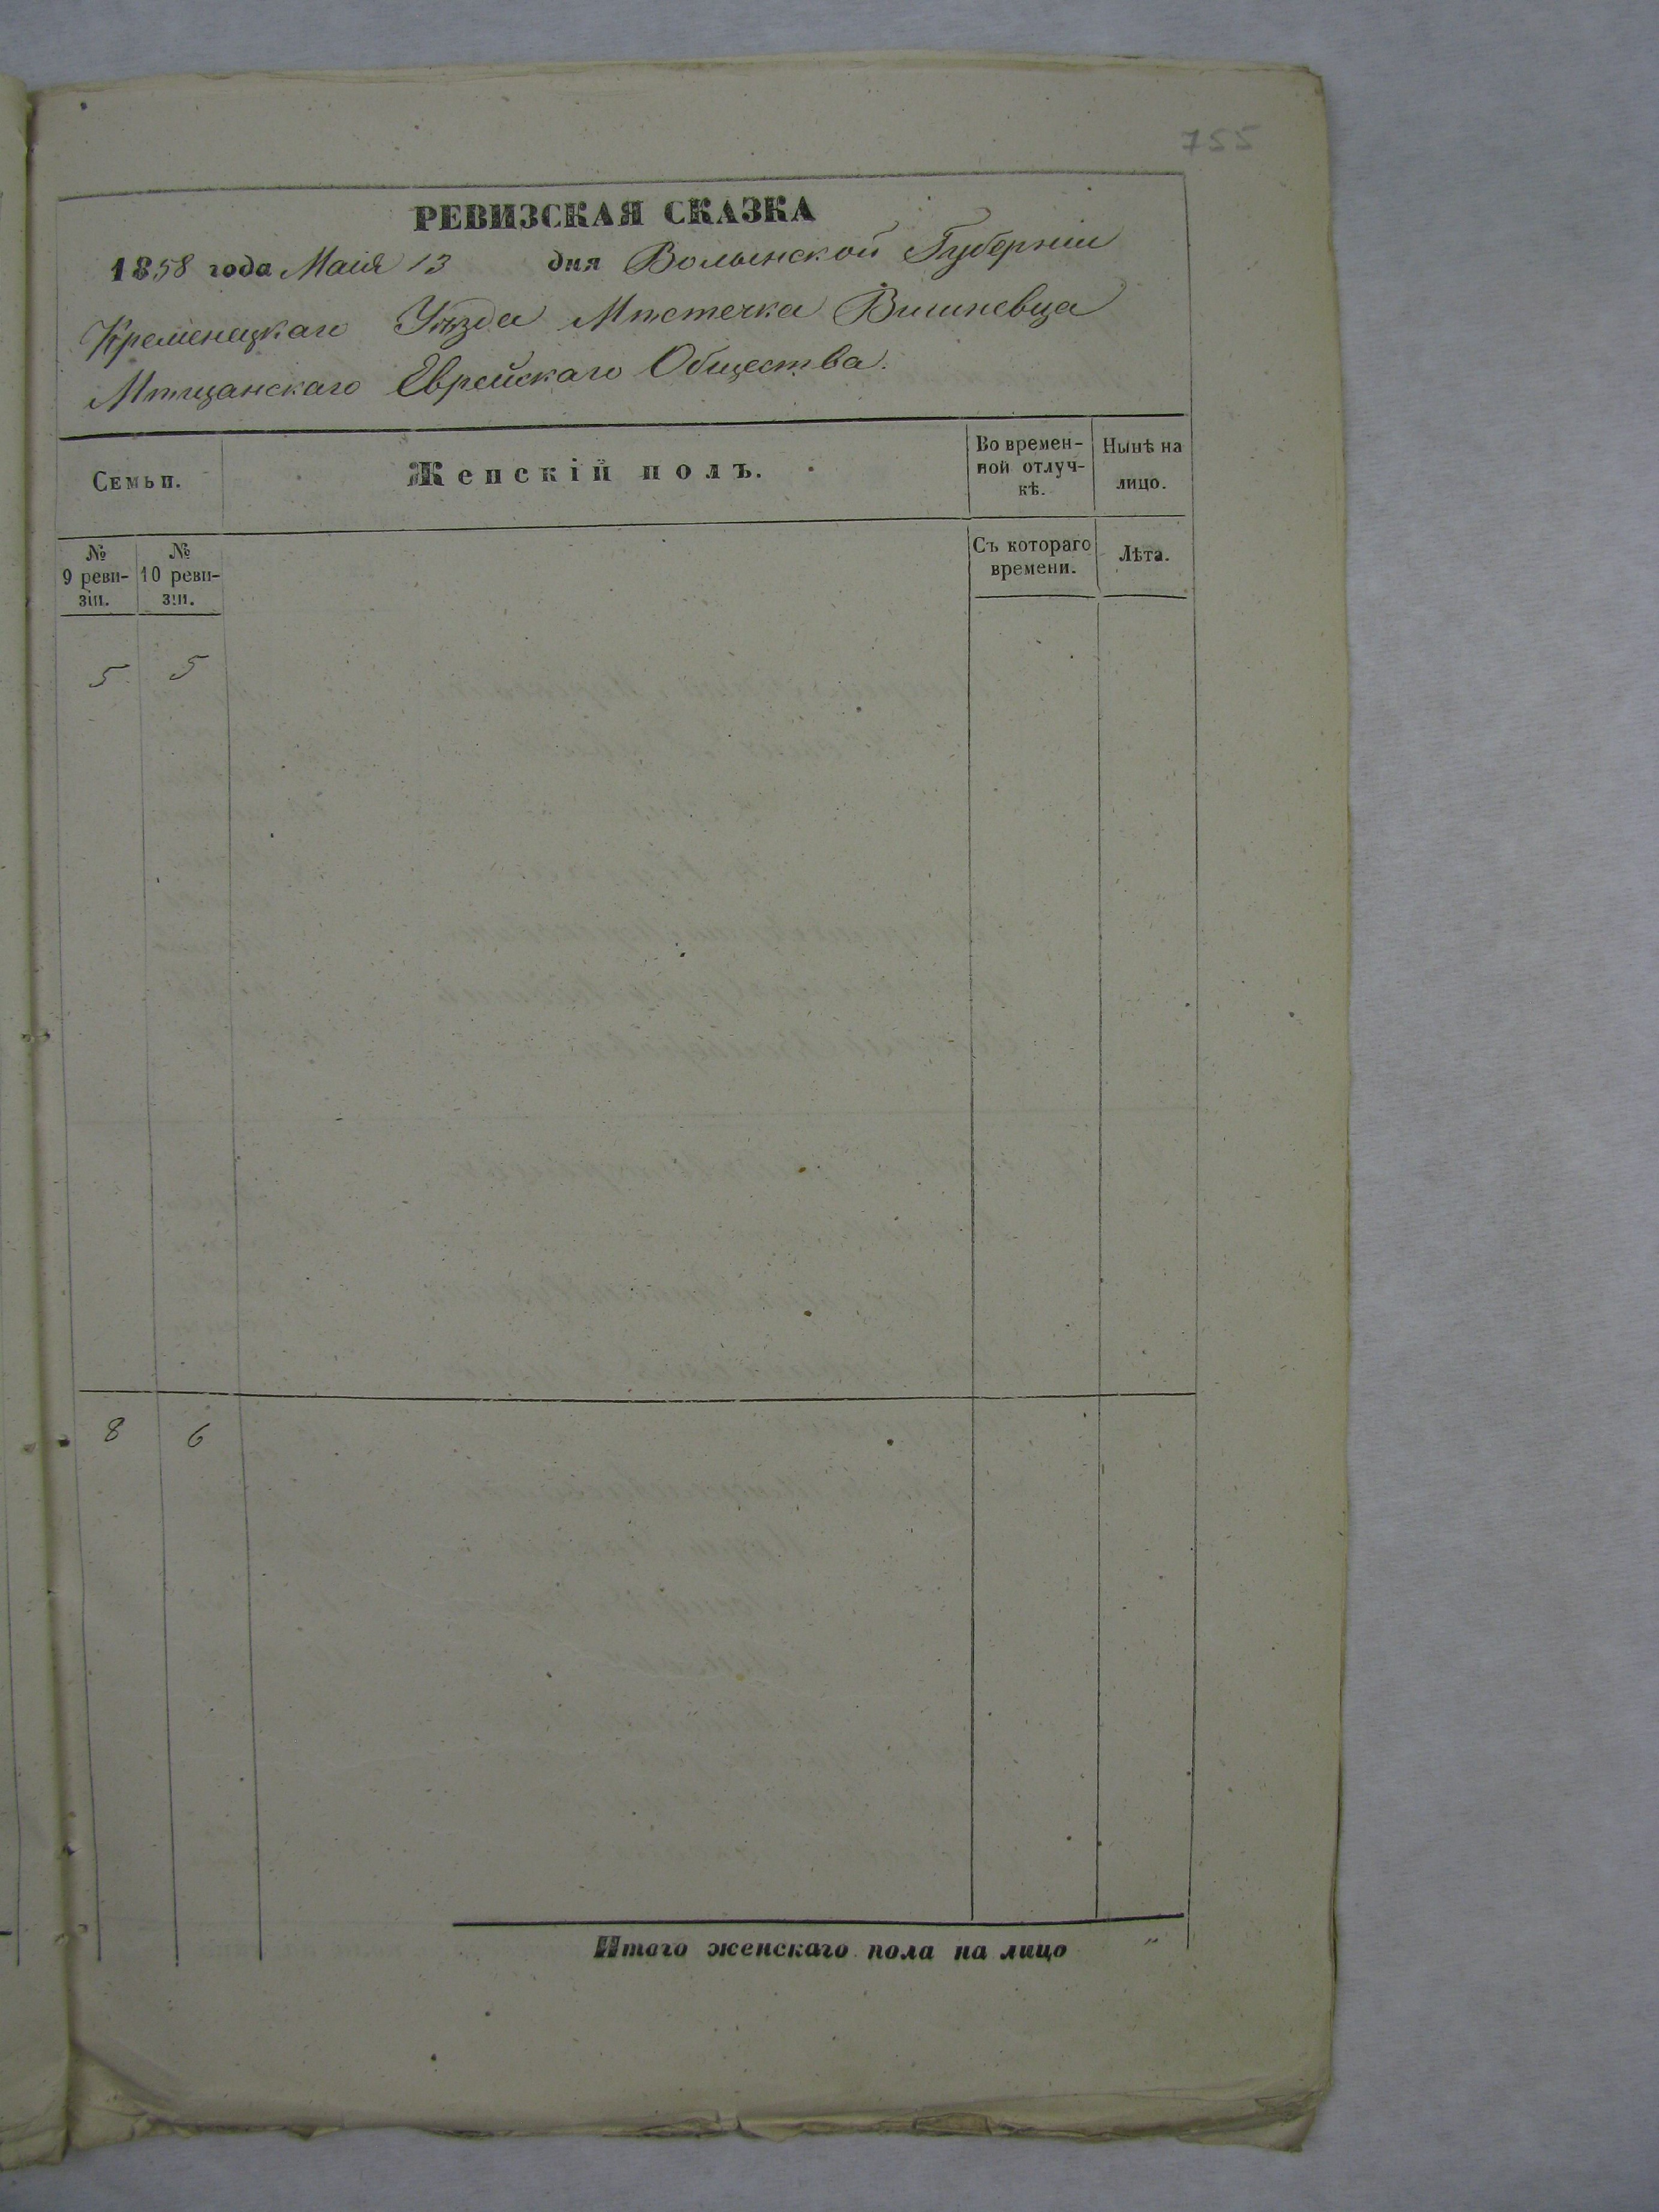 755
РЕВИЗСКАЯ СКАЗКА
1858 года Маія 13 дня Волынской Губерніи
Кременецкаго Уѣзда Мѣстечка Вишневца
Мѣщанскаго Еврейскаго Общества.
Семьи.
Женскій полъ.
Во времен-
ной отлуч-
кѣ.
Нынѣ на
лицо.
№
9 реви-
зіи.
№
10 реви-
зіи.
Съ котораго
времени.
Лѣта.
5 5
8 6
Итого женскаго пола на лицо "